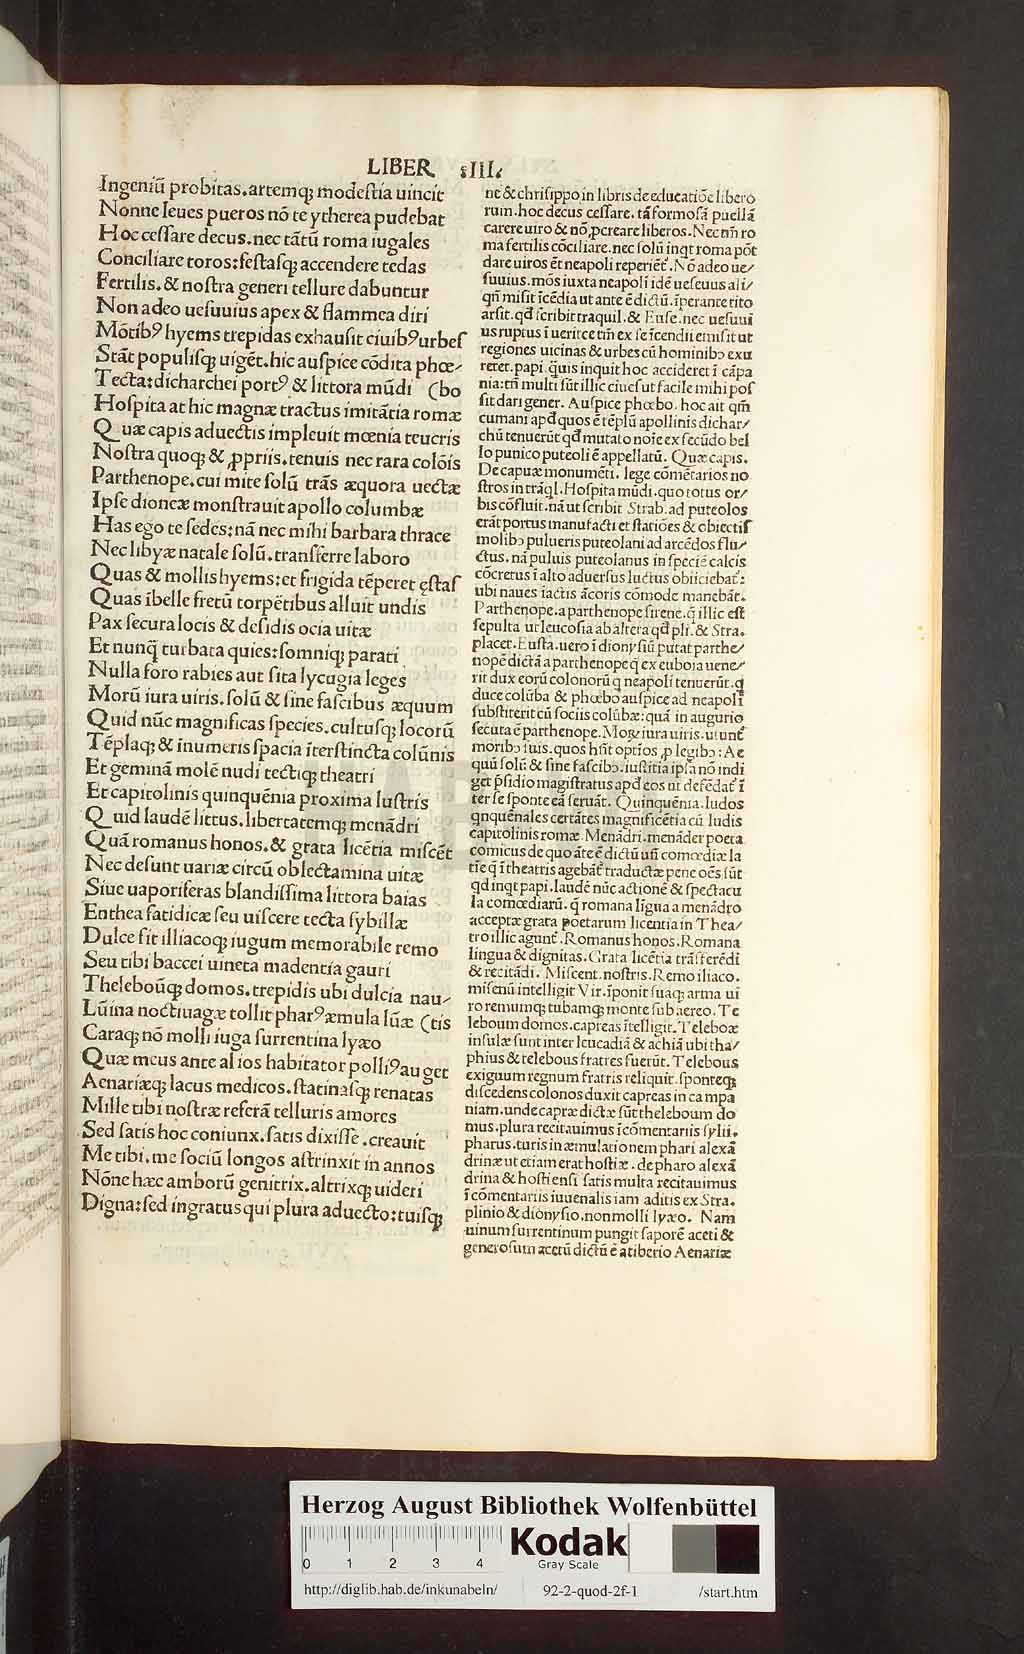 LIBER .III.
Ingeniū probitas.artemq; modeſtia uincit
Nonne leues pueros nō te ytherea pudebat
Hoc ceſſare decus.nec tātū roma iugales
Conciliare toros:feſtaſq; accendere tedas
Fertilis.& noſtra generi tellure dabuntur
Non adeo ueſuuius apex & flammea diri
Mōtibꝰ hyems trepidas exhauſit ciuibꝰ urbeſ
Stāt populiſq; uigēt.hic auſpice cōdita phœ/
Tecta:dicharchei portꝰ & littora mūdi (bo
Hoſpita at hic magnæ tractus imitātia romæ
Quæ capis aduectis impleuit mœnia teucris
Noſtra quoq; & ꝓpriis.tenuis nec rara colōis
Parthenope.cui mite ſolū trās æquora uectæ
Ipſe dioneæ monſtrauit apollo columbæ
Has ego te ſedes:nā nec mihi barbara thrace
Nec libyæ natale ſolū.tranſferre laboro
Quas & mollis hyems:et frigida tēperet ęſtaſ
Quas ībelle fretū torpētibus alluit undis
Pax ſecura locis & deſidis ocia uitæ
Et nunq̄ turbata quies:ſomniq; parati
Nulla foro rabies aut ſita lycugia leges
Morū iura uiris.ſolū & ſine faſcibus æquum
Quid nūc magnificas ſpecies.cultuſq; locorū
Tēplaq; & īnumeris ſpacia īterſtincta colūnis
Et geminā molē nudi tectiq; theatri
Et capitolinis quinquēnia proxima luſtris
Quid laudē littus.libertatemq; menādri
Quā romanus honos.& grata licētia miſcēt
Nec deſunt uariæ circū oblectamina uitæ
Siue uaporiferas blandiſſima littora baias
Enthea fatidicæ ſeu uiſcere tecta ſybillæ
Dulce ſit illiacoq; iugum memorabile remo
Seu tibi baccei uineta madentia gauri
Theleboūq; domos.trepidis ubi dulcia nau/
Lūina noctiuagæ tollit pharꝰæmula lūæ (tis
Caraq; nō molli iuga ſurrentina lyæo
Quæ meus ante alios habitator polliꝰauget
Aenariæq; lacus medicos.ſtatinaſq; renatas
Mille tibi noſtræ referā telluris amores
Sed ſatis hoc coniunx.ſatis dixiſſe.creauit
Me tibi.me ſociū longos aſtrinxit in annos
Nōne hæc amborū genitrix.altrixq; uideri
Digna:ſed ingratus qui plura aduecto:tuiſq;
ne & chriſippo in libris de educatiōe libero
rum.hoc decus ceſſare.tā formoſā puellā
carere uiro & nō ꝓcreare liberos.Nec tm̄ ro
ma fertilis cōciliare.nec ſolū inqt roma pōt
dare uiros et neapoli reperiēt.Nō adeo ue/
ſuuius.mōs iuxta neapolī idē ueſeuus ali/
qn̄ miſit īcēdia ut ante ē dictū.īperante tito
arſit.qd ſcribit traquil.& Euſe.nec ueſuui
us ruptus ī uertice tm̄ ex ſe īcendii emiſit ut
regiones uicinas & urbes cū hominibꝰ exu
reret.papi.quis inquit hoc accideret ī cāpa
nia:tn̄ multi ſūt illic ciueſ ut facile mihi poſ
ſit dari gener. Auſpice phœbo.hoc ait qm̄
cumani apd quos ē tēplū apollinis dichar/
chū tenuerūt qd mutato noīe ex ſecūdo bel
lo punico puteoli ē appellatū. Quæ capis.
De capuæ monumēti.lege cōmētarios no
ſtros in trāql.Hoſpita mūdi.quo totus or/
bis cōfluit.nā ut ſcribit Strab.ad puteolos
erāt portus manufacti et ſtatiōes & obiectiſ
molibꝰ pulueris puteolani ad arcēdos flu/
ctus.nā puluis puteolanus in ſpeciē calcis
cōcretus ī alto aduerſus luctus obiiciebat:
ubi naues īactis ācoris cōmode manebāt.
Parthenope.a parthenope ſirene.q̄ illic eſt
ſepulta ut leucoſia ab altera qd pli.& Stra.
placet.Euſta.uero ī dionyſiū putat parthe/
nopē dictā a parthenope q̄ ex euboia uene/
rit dux eorū colonorū q̄ neapolī tenuerūt.q
duce colūba & phœbo auſpice ad neapolī
ſubſtiterit cū ſociis colūbæ:quā in augurio
ſecuta ē parthenope.Moꝝ iura uiris.utunt
moribꝰ ſuis.quos hn̄t optīos ꝓ legibꝰ:Ae
quū ſolū & ſine faſcibꝰ.iuſtitia ipſa nō indi
get p̄ſidio magiſtratus apd eos nt defēdat ī
ter ſe ſponte eā ſeruāt. Quinquēnia.ludos
qnquēnales certātes magnificētia cū ludis
capitolinis romæ. Menādri.menāder poeta
comicus de quo āte ē dictū uſi comœdiæ la
tīe q ī theatris agebāt traductæ pene oēs ſūt
qd inqt papi.laudē nūc actionē & ſpectacu
la comœdiarū.q̄ romana ligua a menādro
acceptæ grata poetarum licentia in Thea/
tro illic agunt.Romanus honos.Romana
lingua & dignitas.Grata licētia trāſferēdi
& recitādi. Miſcent.noſtris.Remo iliaco.
miſenū intelligit Vir.īponit ſuaq; arma ui
ro remumq; tubamq; monte ſub aereo.Te
leboum domos.capreas ītelligit.Teleboæ
inſulæ ſunt inter leucadiā & achiā ubi tha/
phius & telebous fratres fuerūt.Telebous
exiguum regnum fratris reliquit.ſponteq;
diſcedens colonos duxit capreas in campa
niam.unde capræ dictæ ſūt theleboum do
mus.plura recitauimus ī cōmentariis ſylii.
pharus.turis in æmulationem phari alexā
drinæ ut etiam erat hoſtiæ.de pharo alexā
drina & hoſtienſi ſatis multa recitauimus
ī cōmentariis iuuenalis iam aditis ex Stra.
plinio & dionyſio.non molli lyæo. Nam
uinum ſurrentinum pungit ſaporē aceti &
generoſum acetū dictū ē a tiberio Aenariæ
Herzog August Bibliothek Wolfenbüttel
0 1 2 3 4
Kodak
Gray Scale
http://diglib.hab.de/inkunabeln/ 92-2-quod-2f-1 /start.htm